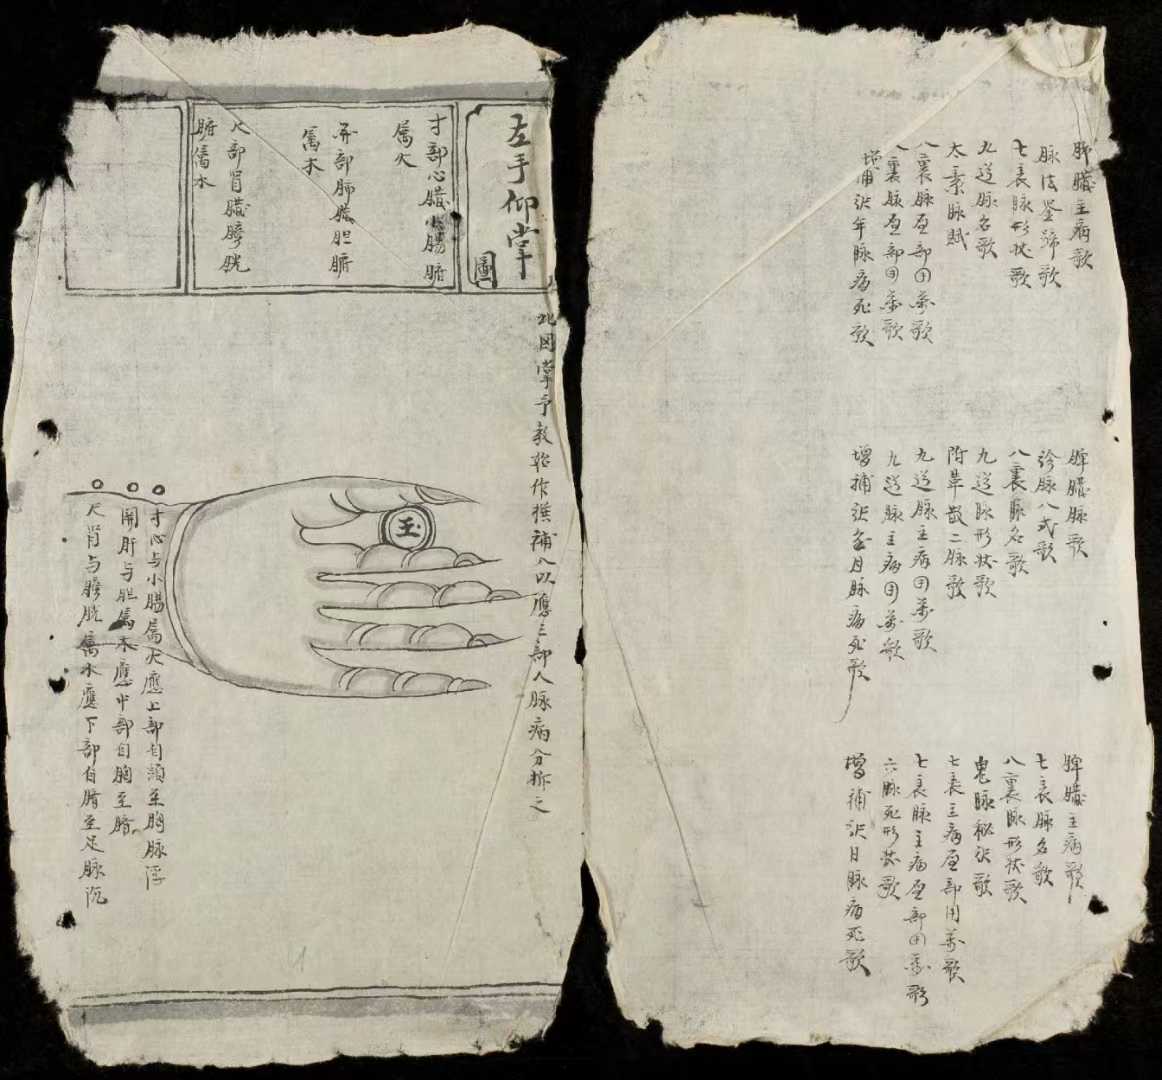 肺臟主病歌 脾臟脉歌 脾臟主病歌
脉法 歌 診脉八式歌 七表脉名歌
七表脉形状歌 八裏脉名歌 八裏脉形状歌
九道脉名歌 九道脉形状歌 鬼脉秘訣歌
太素脉賦 附革散二脉歌 七表主病 部用藥歌
八裏脉 部用藥歌 九道脉主病用藥歌 七表脉主病 部用藥歌
八裏脉 部用藥歌 九道脉主病用藥歌 六脉死形状歌
增補訣年脉病死歌 增補訣 月脉病死歌 增補訣日脉病死歌
左手仰掌
圖
此因掌予教 作 補入以應三部人脉病分拆之
寸部心臟小腸腑
属火
部肺臟胆腑
属木
尺部肾臟膀胱
腑属水
玉
寸心与小腸属火應上部自頭至胸脉浮
関肝与胆属木應中部自胸至臍
尺肾与膀胱属水應下部自臍至足脉沉